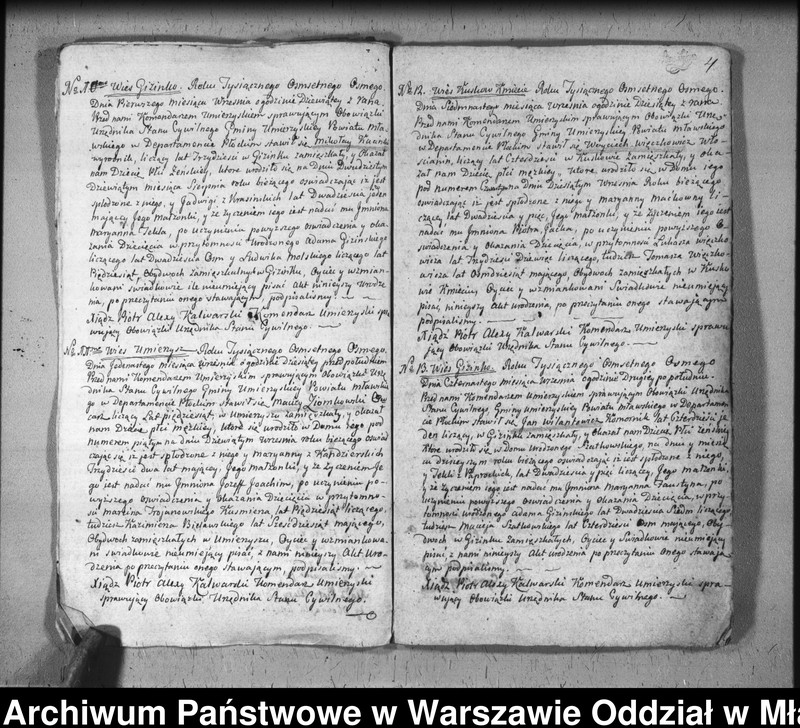 No 10 Wieś Giżinko. Roku Tysiącznego Osmsetnego Osmego.
Dnia Pierwszego miesiąca Września o godzinie Dziewiątey z rana
Przed nami Komendarzem Umierzyskim sprawuiącym Obowiązki
Urzędnika Stanu Cywilnego Gminy Umierzyskiey Powiatu mła-
wskiego w Departamencie Płockim stawił się Mikołay
wyrobnik, liczący lat Trzydzieści w Giżinku zamieszkały, y okazał
nam Dziecię Płci Żeńskiey, które urodziło się na Dniu Dwudziestym
Dziewiątym miesiąca Sierpnia roku bieżącego oświadczając iż jest
spłodzone z niego, y Jadwigi z Krasińskich lat Dwadzieścia jeden
maiącey Jego Małżonki, y że życzeniem iego jest nadać mu Jmniona
Maryanna Tekla, po uczynieniu powyższego oświadczenia y oka-
zania Dziecięcia w przytomności Urodzonego Adama Giżińskiego
liczącego lat Dwadzieścia Osm y Ludwika Molskiego liczącego lat
Pędziesiąt, Obydwoch zamieszkałych w Giżinku, Oyciec y wzmian-
kowani świadkowie nie umieiący pisać Akt ninieyszy Urodze-
nia, po przeczytaniu onego stawaiącym, podpisaliśmy.
Xiądz Piotr Alexy Kalwarski Komendarz Umierzyski spra-
wuiący Obowiązki Urzędnika Stanu Cywilnego.
No 11 Wieś Umierzysz. Roku Tysiącznego Osmsetnego Osmego.
Dnia Jedenastego miesiąca Września o godzinie Dziesiątey przed południem.
Przed nami Komendarzem Umierzyskim sprawuiącym Obowiązki Urzę-
dnika Stanu Cywilnego Gminy Umierzyskiey Powiatu mławskie-
go w Departamencie Płockim stawił się Maciey Ziomkowski
liczący Lat Pięćdziesiąt, w Umierzyszu zamieszkały, y okazał
nam Dziecię płci męzkiey, które się urodziło w Domu iego pod
numerem piątym na dniu Dziewiątym Września roku bieżącego oświad-
czając się iż jest spłodzone z niego y maryanny z Kandzierskich
Trzydzieści dwa lat maiącey, Jego Małżonki, y że życzeniem Je-
go jest nadać mu Jmniona Jozeff Joachim, po uczynieniu po-
wyższego oświadczenia y Okazania Dziecięcia w przytomno-
ści Marcina Trojanowskiego Kuśmierza lat Pędziesiąt liczącego,
tudzież Kazimierza Bielawskiego lat Sześćdziesiąt maiącego,
Obydwoch zamieszkałych w Umierzyszu, Oyciec y wzmiankowa-
ni świadkowie nieumieiący pisać, z nami ninieyszy Akt Uro-
dzenia po przeczytaniu onego stawaiącym, podpisaliśmy.
Xiądz Piotr Alexy Kalwarski Komendarz Umierzyski
sprawuiący Obowiązki Urzędnika Stanu Cywilnego.
4
No 12. Wieś Kuskowo Kmiece Roku Tysiącznego Osmsetnego Osmego.
Dnia Siedmnastego miesiąca Września o godzinie Dziesiątey z rana
Przed nami Komendarzem Umierzyskim sprawuiącym Obowiązki Urzę-
dnika Stanu Cywilnego Gminy Umierzyskiey Powiatu mławskiego
w Departamencie Płockim stawił się Woyciech Więczkowicz Wło-
ścianin, liczący lat Czterdzieści w Kuskowie zamieszkały, y oka-
zał nam Dziecię płci męzkiey, które urodziło się w Domu iego
pod numerem Czwartym na Dniu Dziesiątym Września Roku bieżącego
oświadczając iż jest spłodzone z niego y maryanny Machowny li-
czącey, lat Dwadzieścia y pięć, Jego Małżonki, y że życzeniem iego jest
nadać mu Jmniona Piotra, po uczynieniu powyższego O-
świadczenia y Okazania Dziecięcia, w przytomności Łukasza Więczko-
wicza lat Trzydzieści Dziewięć liczącego, tudzież Tomasza Więczko-
wicza lat Ośmdziesiąt maiącego, Obydwoch zamieszkałych w Kusko-
wie Kmiecim, Oyciec y wzmiankowani Świadkowie nieumieiący
pisać, ninieyszy Akt Urodzenia, po przeczytaniu onego stawaiącym
podpisaliśmy.
Xiądz Piotr Alexy Kalwarski Komendarz Umierzyski sprawu-
iący Obowiązki Urzędnika Stanu Cywilnego.
No 13. Wieś Giżinko. Roku Tysiącznego Osmsetnego Osmego
Dnia Czternastego miesiąca Września o godzinie Drugiey po południu.
Przed nami Komendarzem Umierzyskim sprawuiącym Obowiązki Urzędnika
Stanu Cywilnego, Gminy Umierzyskiey Powiatu mławskiego w Departamen-
cie Płockim stawił się Jan Wilantowicz Komornik lat Czterdzieści je-
den liczący, w Giżinku zamieszkały, y okazał nam Dziecię Płci żeńskiey
które urodziło się w Domu Urodzonego Szutkowskiego, na dniu
roku bieżącego oświadczając iż jest spłodzone z niego,
y Tekli z Paprockich, lat Dwadzieścia y pięć liczącey, Jego Małżonki,
y że życzeniem iego jest nadać mu Jmniona Maryanna Faustyna, po
uczynieniu powyższego Oświadczenia y Okazania Dziecięcia, w przy-
tomności Urodzonego Adama Giżińskiego lat Dwadzieścia Siedm liczącego,
tudzież Macieja Szutkowskiego lat Czterdzieści Osm maiącego, Oby-
dwoch w Giżinku zamieszkałych, Oyciec y Świadkowie nieumieiący
pisać, z nami ninieyszy Akt Urodzenia po przeczytaniu onego stawaią-
cym podpisaliśmy.
Xiądz Piotr Alexy Kalwarski Komendarz Umierzyski spra-
wuiący Obowiązki Urzędnika Stanu Cywilnego.
Archiwum Państwowe w Warszawie Oddział w Mła